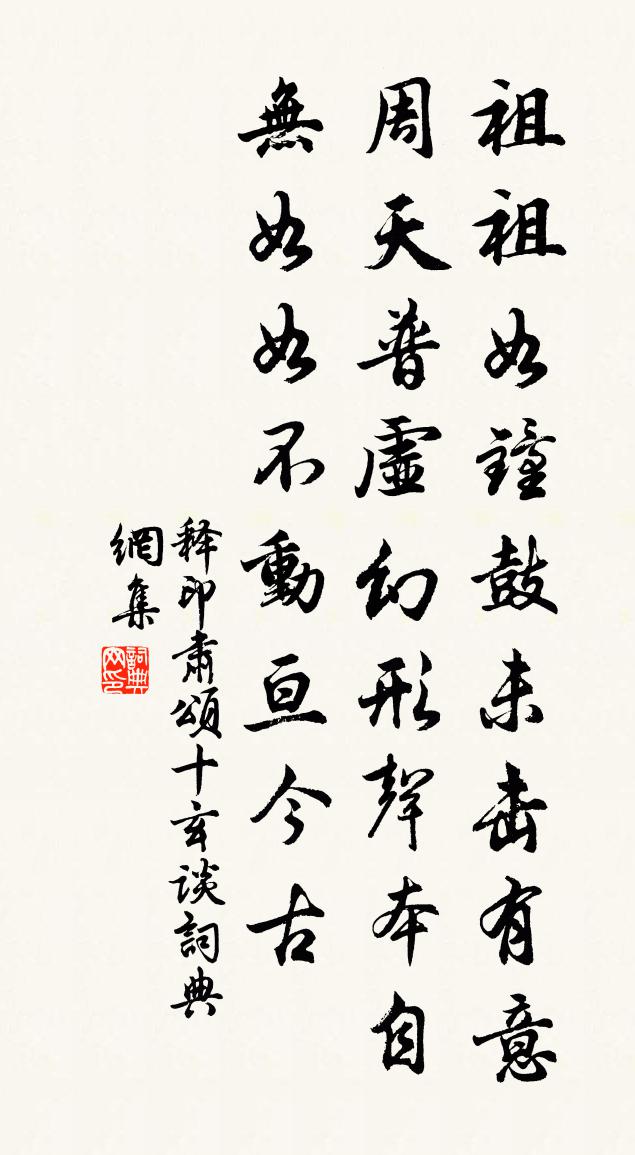 祖祖如鐘鼓未击有意
周天普虛幻形聲本自
無如如不動亘今古
释印肅頌十玄谈詞典
網集
詞典
网印